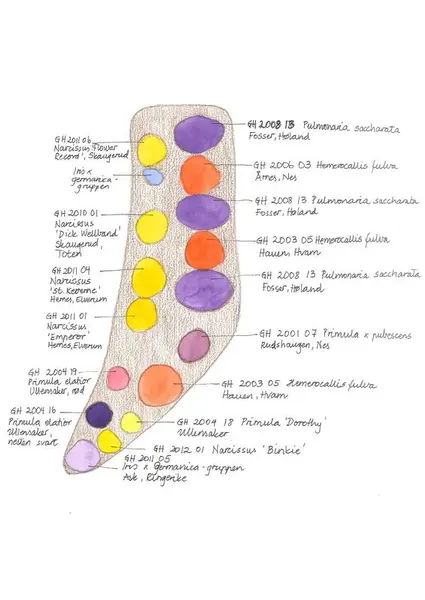 GH 2008 13 Pulmonaria saccharata
Fosser, Høland
GH 2011 06
Narcissus 'Flower
Record', Skaugerud
Iris x
germanica-
gruppen
GH 2006 03 Hemerocallis fulva
Årnes, Nes
GH 2008 13 Pulmonaria saccharata
Fosser, Høland
GH 2010 01
Narcissus
'Dick Wellband'
Skaugerud,
Toten
GH 2003 05 Hemerocallis fulva
Hauen, Hvam
GH 2011 04
Narcissus
'St. Keverne'
Hernes, Elverum
GH 2008 13 Pulmonaria saccharata
Fosser, Høland
GH 2011 01
Narcissus
'Emperor'
Hernes, Elverum
GH 2001 07 Primula x pubescens
Rudshaugen, Nes
GH 2004 19
Primula elatior
Ullensaker, rød
GH 2003 05 Hemerocallis fulva
Hauen, Hvam
GH 2004 16
Primula elatior
Ullensaker,
nesten svart
GH 2004 18 Primula 'Dorothy'
Ullensaker
GH 2012 01 Narcissus 'Binkie'
GH 2011 05
Iris x Germanica-gruppen
Ask, Ringerike